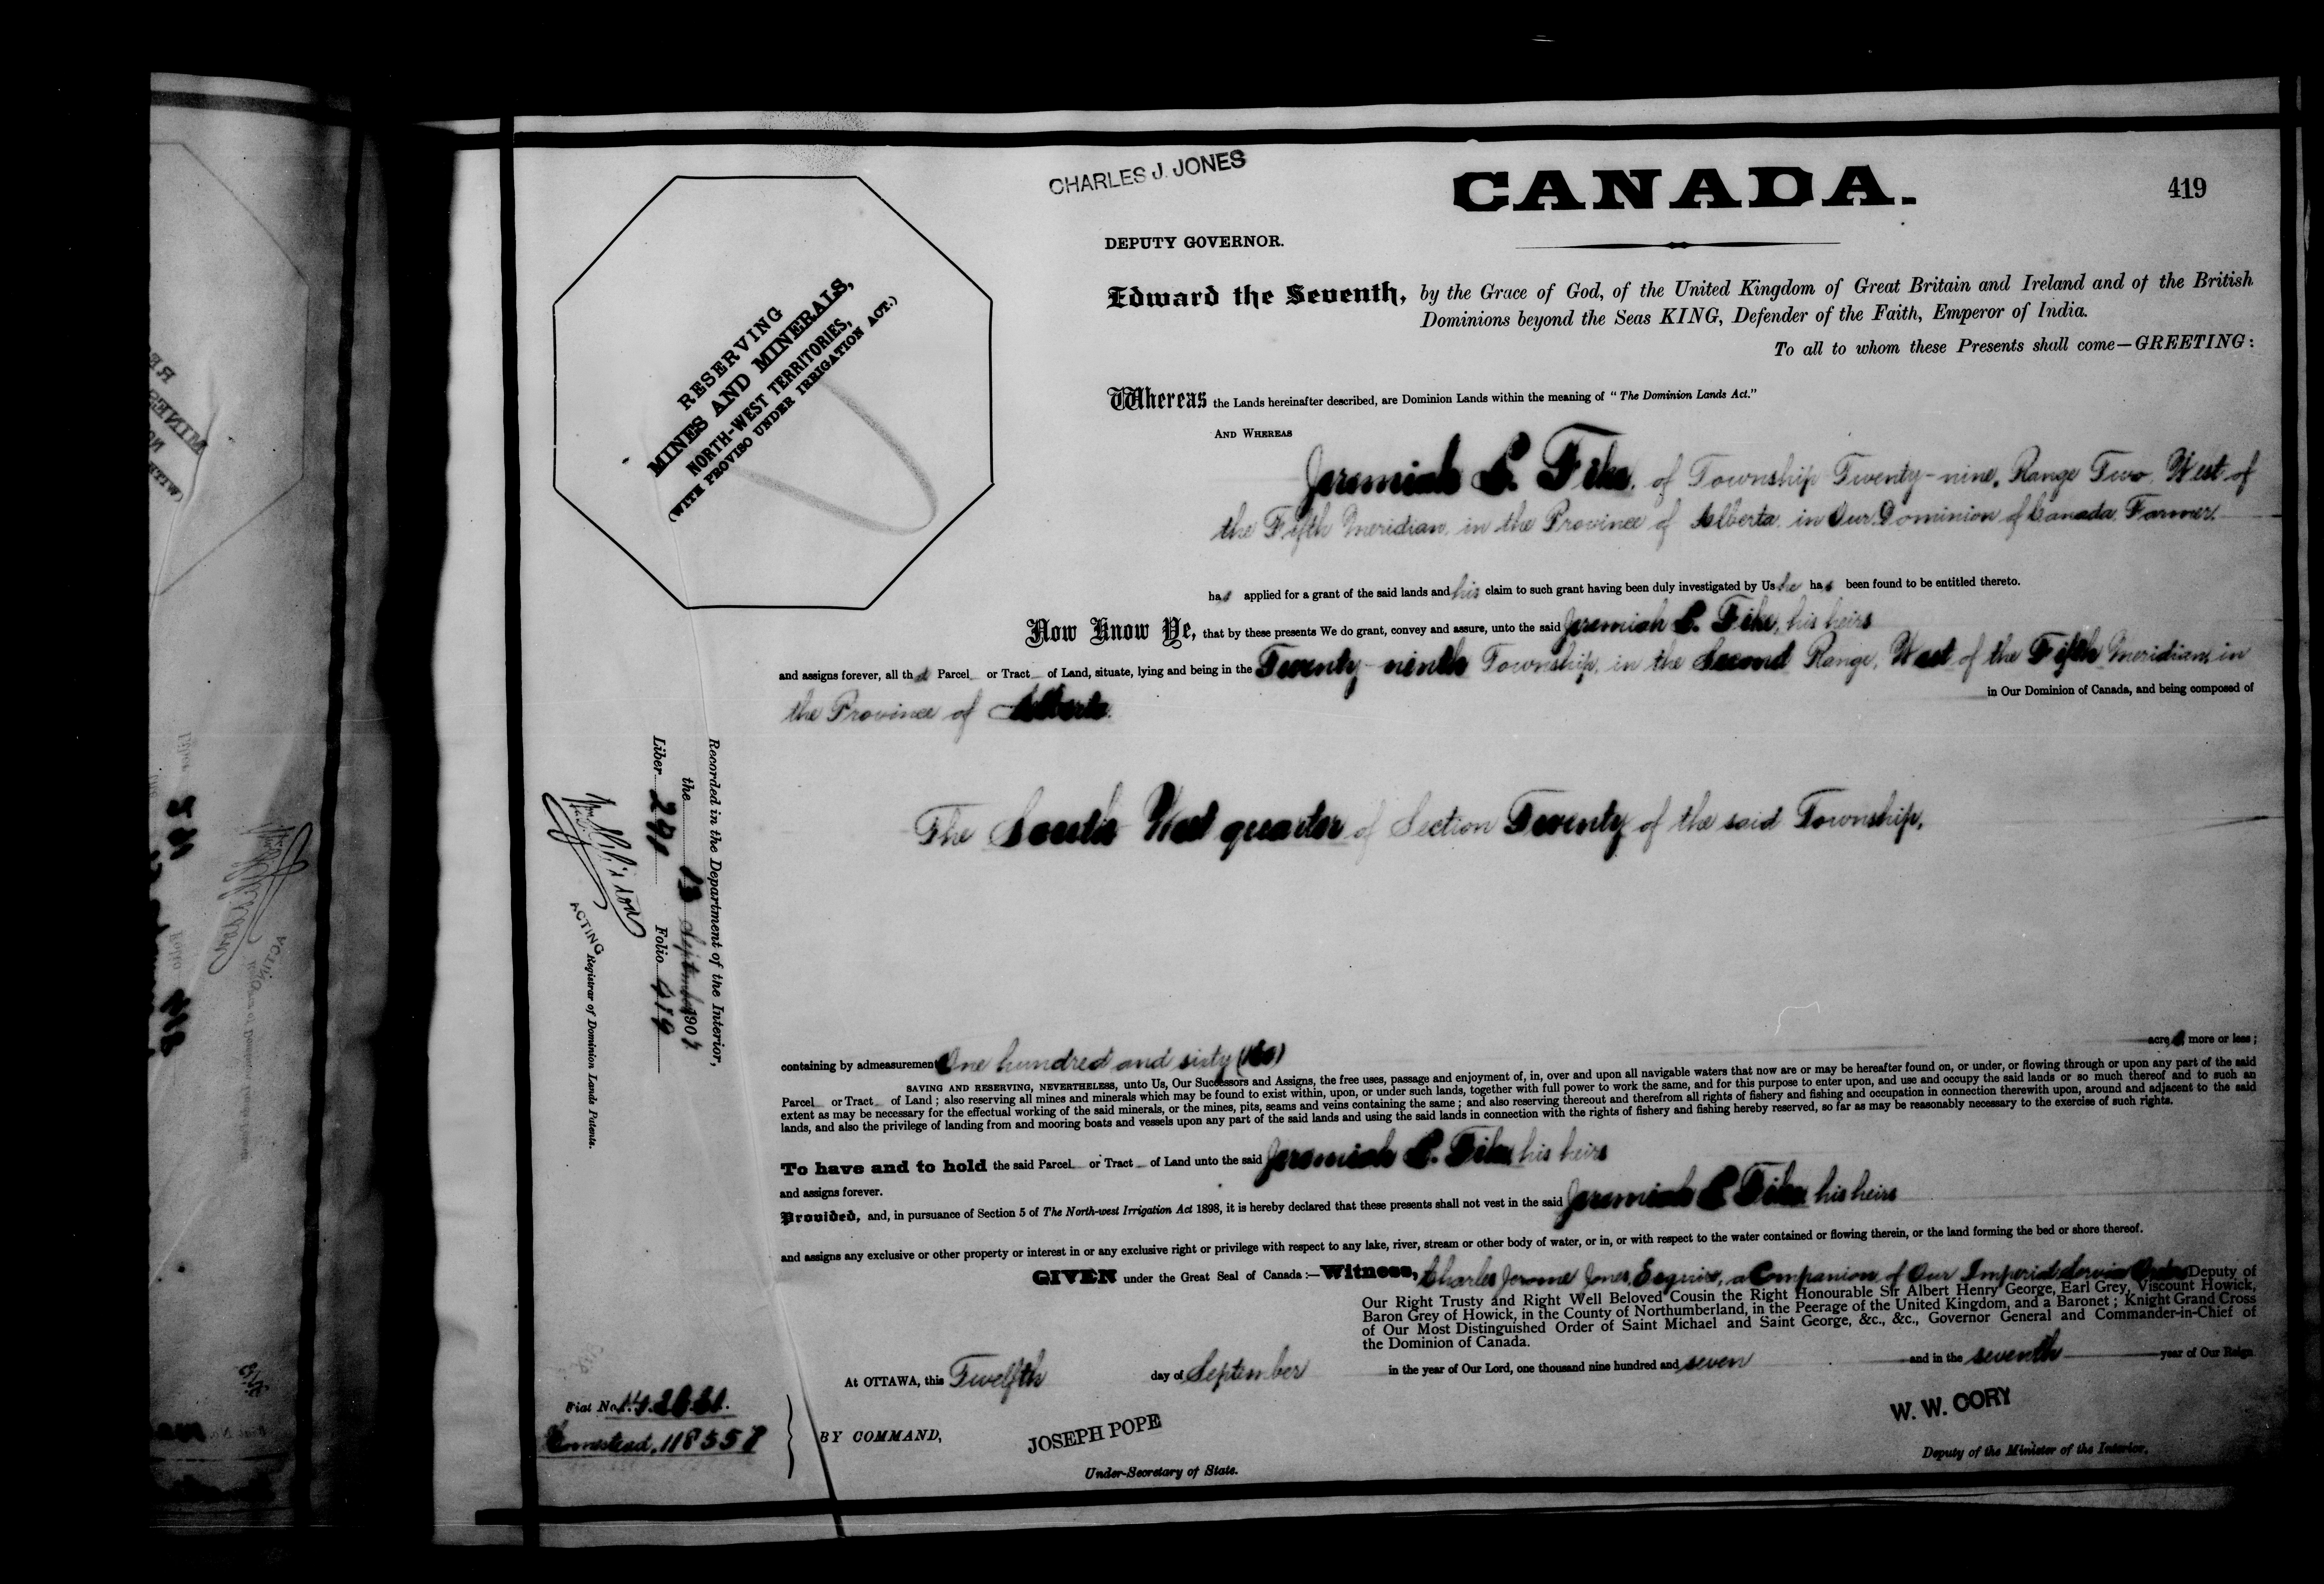 CHARLES J. JONES
CANADA.
419
DEPUTY GOVERNOR.
RESERVING
MINES AND MINERALS,
NORTH-WEST TERRITORIES,
(WITH PROVISO UNDER IRRIGATION ACT.)
Edward the Seventh, by the Grace of God, of the United Kingdom of Great Britain and Ireland and of the British
Dominions beyond the Seas KING, Defender of the Faith, Emperor of India.
To all to whom these Presents shall come—GREETING:
Whereas the Lands hereinafter described, are Dominion Lands within the meaning of "The Dominion Lands Act."
AND WHEREAS
Jeremiah of Township Twenty-nine, Range Two, West of
the Fifth Meridian, in the Province of Alberta, in Our Dominion of Canada, Farmer,
has applied for a grant of the said lands and his claim to such grant having been duly investigated by Us he has been found to be entitled thereto.
Now Know Ye, that by these presents We do grant, convey and assure, unto the said Jeremiah his heirs
and assigns forever, all that Parcel or Tract of Land, situate, lying and being in the Twenty-ninth Township, in the Second Range, West of the Fifth Meridian, in
the Province of Alberta. in Our Dominion of Canada, and being composed of
The South West quarter of Section Twenty of the said Township,
Recorded in the Department of the Interior,
the 13 September 1907
Liber 291 Folio 419
ACTING Registrar of Dominion Lands Patents.
containing by admeasurement One hundred and sixty (160) acres, more or less;
SAVING AND RESERVING, NEVERTHELESS, unto Us, Our Successors and Assigns, the free uses, passage and enjoyment of, in, over and upon all navigable waters that now are or may be hereafter found on, or under, or flowing through or upon any part of the said
Parcel or Tract of Land; also reserving all mines and minerals which may be found to exist within, upon, or under such lands, together with full power to work the same, and for this purpose to enter upon, and use and occupy the said lands or so much thereof and to such an
extent as may be necessary for the effectual working of the said minerals, or the mines, pits, seams and veins containing the same; and also reserving thereout and therefrom all rights of fishery and fishing and occupation in connection therewith upon, around and adjacent to the said
lands, and also the privilege of landing from and mooring boats and vessels upon any part of the said lands and using the said lands in connection with the rights of fishery and fishing hereby reserved, so far as may be reasonably necessary to the exercise of such rights.
To have and to hold the said Parcel or Tract of Land unto the said Jeremiah his heirs
and assigns forever.
Provided, and, in pursuance of Section 5 of The North-west Irrigation Act 1898, it is hereby declared that these presents shall not vest in the said Jeremiah his heirs
and assigns any exclusive or other property or interest in or any exclusive right or privilege with respect to any lake, river, stream or other body of water, or in, or with respect to the water contained or flowing therein, or the land forming the bed or shore thereof.
GIVEN under the Great Seal of Canada:—Witness, Charles Jerome Jones, Esquire, a Companion of Our Imperial Service Order Deputy of
Our Right Trusty and Right Well Beloved Cousin the Right Honourable Sir Albert Henry George, Earl Grey, Viscount Howick,
Baron Grey of Howick, in the County of Northumberland, in the Peerage of the United Kingdom, and a Baronet; Knight Grand Cross
of Our Most Distinguished Order of Saint Michael and Saint George, &c., &c., Governor General and Commander-in-Chief of
the Dominion of Canada.
At OTTAWA, this Twelfth day of September in the year of Our Lord, one thousand nine hundred and seven and in the seventh year of Our Reign.
Fiat No.
Homestead, 118557
BY COMMAND,
JOSEPH POPE
Under-Secretary of State.
W. W. CORY
Deputy of the Minister of the Interior.